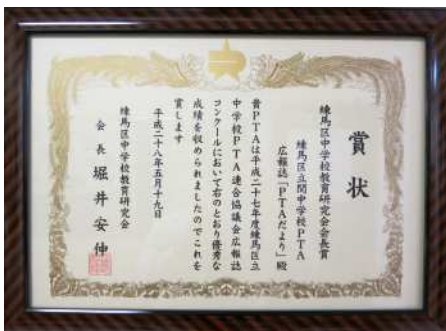 賞状
練馬区中学校教育研究会会長賞
練馬区立開中学校PTA
広報誌「PTAだより」殿
貴PTAは平成二十七年度練馬区立
中学校PTA連合協議会広報誌
コンクールにおいて右のとおり優秀な
成績を収められましたのでこれを
賞します
平成二十八年五月十九日
練馬区中学校教育研究会
会長 堀井安伸